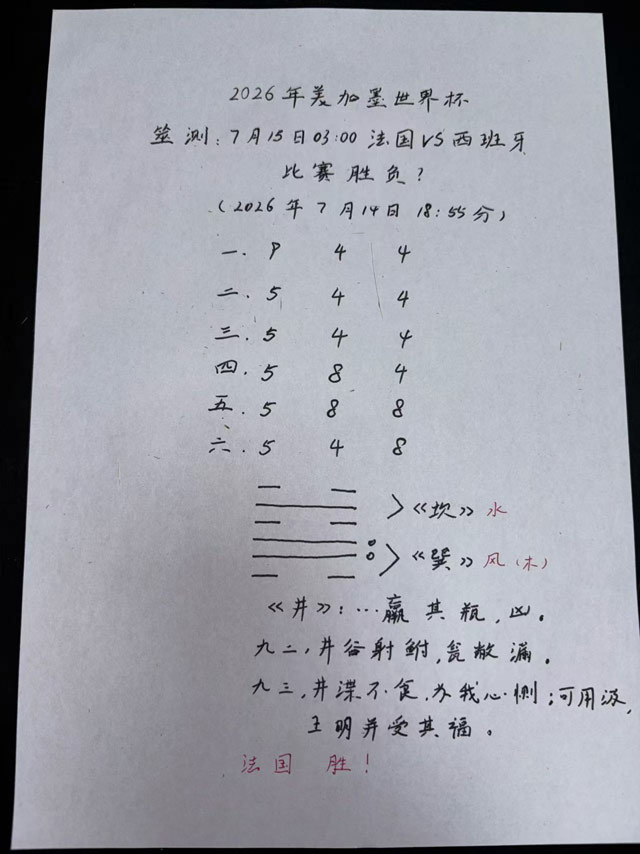 2026年美加墨世界杯
筮测:7月15日03:00 法国VS西班牙
比赛胜负?
(2026年7月14日 18:55分)
一. 9 4 4
二. 5 4 4
三. 5 4 4
四. 5 8 4
五. 5 8 8
六. 5 4 8
《坎》水
《巽》风(木)
《井》:…羸其瓶,凶。
九二,井谷射鲋,瓮敝漏。
九三,井渫不食,为我心恻;可用汲,
王明并受其福。
法国 胜!